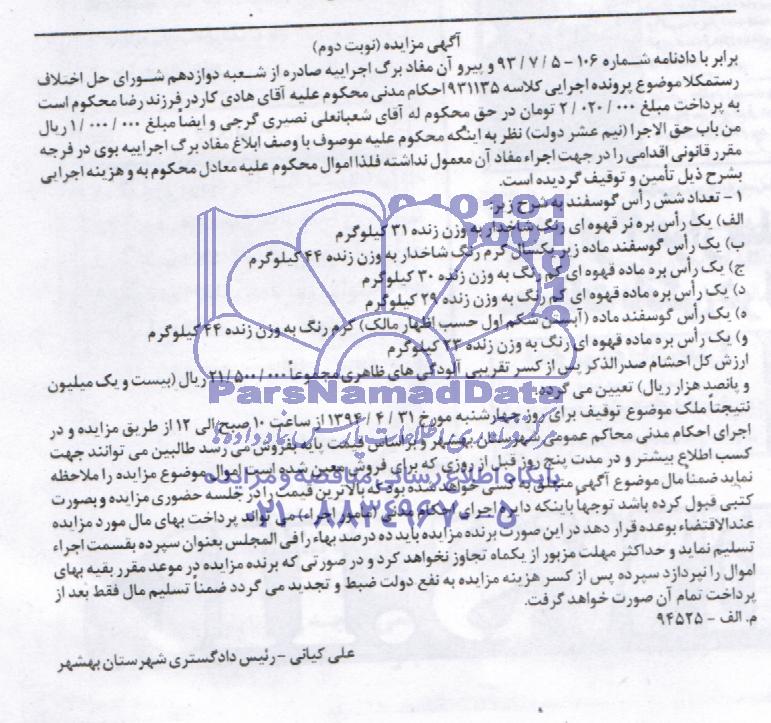 آگهی مزایده (نوبت دوم)
برابر با دادنامه شماره ۱۰۶ - ۵ / ۷ / ۹۳ و پیرو آن مفاد برگ اجراییه صادره از شعبه دوازدهم شورای حل اختلاف
رستمکلا موضوع پرونده اجرایی کلاسه ۹۳۱۱۳۵ احکام مدنی محکوم علیه آقای هادی کاردر فرزند رضا محکوم است
به پرداخت مبلغ ۲/۰۲۰/۰۰۰ تومان در حق محکوم له آقای شعبانعلی نصیری گرجی و ایضاً مبلغ ۱/۰۰۰/۰۰۰ ریال
من باب حق الاجرا (نیم عشر دولت) نظر به اینکه محکوم علیه موصوف با وصف ابلاغ مفاد برگ اجراییه بوی در فرجه
مقرر قانونی اقدامی را در جهت اجراء مفاد آن معمول نداشته فلذا اموال محکوم علیه معادل محکوم به و هزینه اجرایی
بشرح ذیل تأمین و توقیف گردیده است.
۱ - تعداد شش رأس گوسفند به شرح زیر:
الف) یک رأس بره نر قهوه ای رنگ شاخدار به وزن زنده ۳۱ کیلوگرم
ب) یک رأس گوسفند ماده زیر یکسال کرم رنگ شاخدار به وزن زنده ۴۴ کیلوگرم
ج) یک رأس بره ماده قهوه ای کم رنگ به وزن زنده ۳۰ کیلوگرم
د) یک رأس بره ماده قهوه ای کم رنگ به وزن زنده ۲۹ کیلوگرم
ه) یک رأس گوسفند ماده (آبستن شکم اول حسب اظهار مالک) کرم رنگ به وزن زنده ۴۴ کیلوگرم
و) یک رأس بره ماده قهوه ای رنگ به وزن زنده ۲۳ کیلوگرم
ارزش کل احشام صدرالذکر پس از کسر تقریبی آلودگی های ظاهری مجموعاً ۲۱/۵۰۰/۰۰۰ ریال (بیست و یک میلیون
و پانصد هزار ریال) تعیین می گردد.
نتیجتاً ملک موضوع توقیف برای روز چهارشنبه مورخ ۳۱ / ۴ / ۱۳۹۴ از ساعت ۱۰ صبح الی ۱۲ از طریق مزایده و در
اجرای احکام مدنی محاکم عمومی شهرستان بهشهر و براساس قیمت پایه بفروش می رسد طالبین می توانند جهت
کسب اطلاع بیشتر و در مدت پنج روز قبل از روزی که برای فروش معین شده است اموال موضوع مزایده را ملاحظه
نماید ضمناً مال موضوع آگهی متعلق به کسی خواهد شد بود که بالاترین قیمت را در جلسه حضوری مزایده و بصورت
کتبی قبول کرده باشد توجهاً باینکه دایره اجرای احکام مدنی (مأمور اجراء) می تواند پرداخت بهای مال مورد مزایده
عندالاقتضاء بوعده قرار دهد در این صورت برنده مزایده باید ده درصد بهاء را فی المجلس بعنوان سپرده بقسمت اجراء
تسلیم نماید و حداکثر مهلت مزبور از یکماه تجاوز نخواهد کرد و در صورتی که برنده مزایده در موعد مقرر بقیه بهای
اموال را نپردازد سپرده پس از کسر هزینه مزایده به نفع دولت ضبط و تجدید می گردد ضمناً تسلیم مال فقط بعد از
پرداخت تمام آن صورت خواهد گرفت.
م. الف - ۹۴۵۲۵
علی کیانی - رئیس دادگستری شهرستان بهشهر
ParsNamadData
پایگاه اطلاع رسانی مناقصه و مزایده
۰۲۱-۸۸۳۴۹۶۷۰-۵